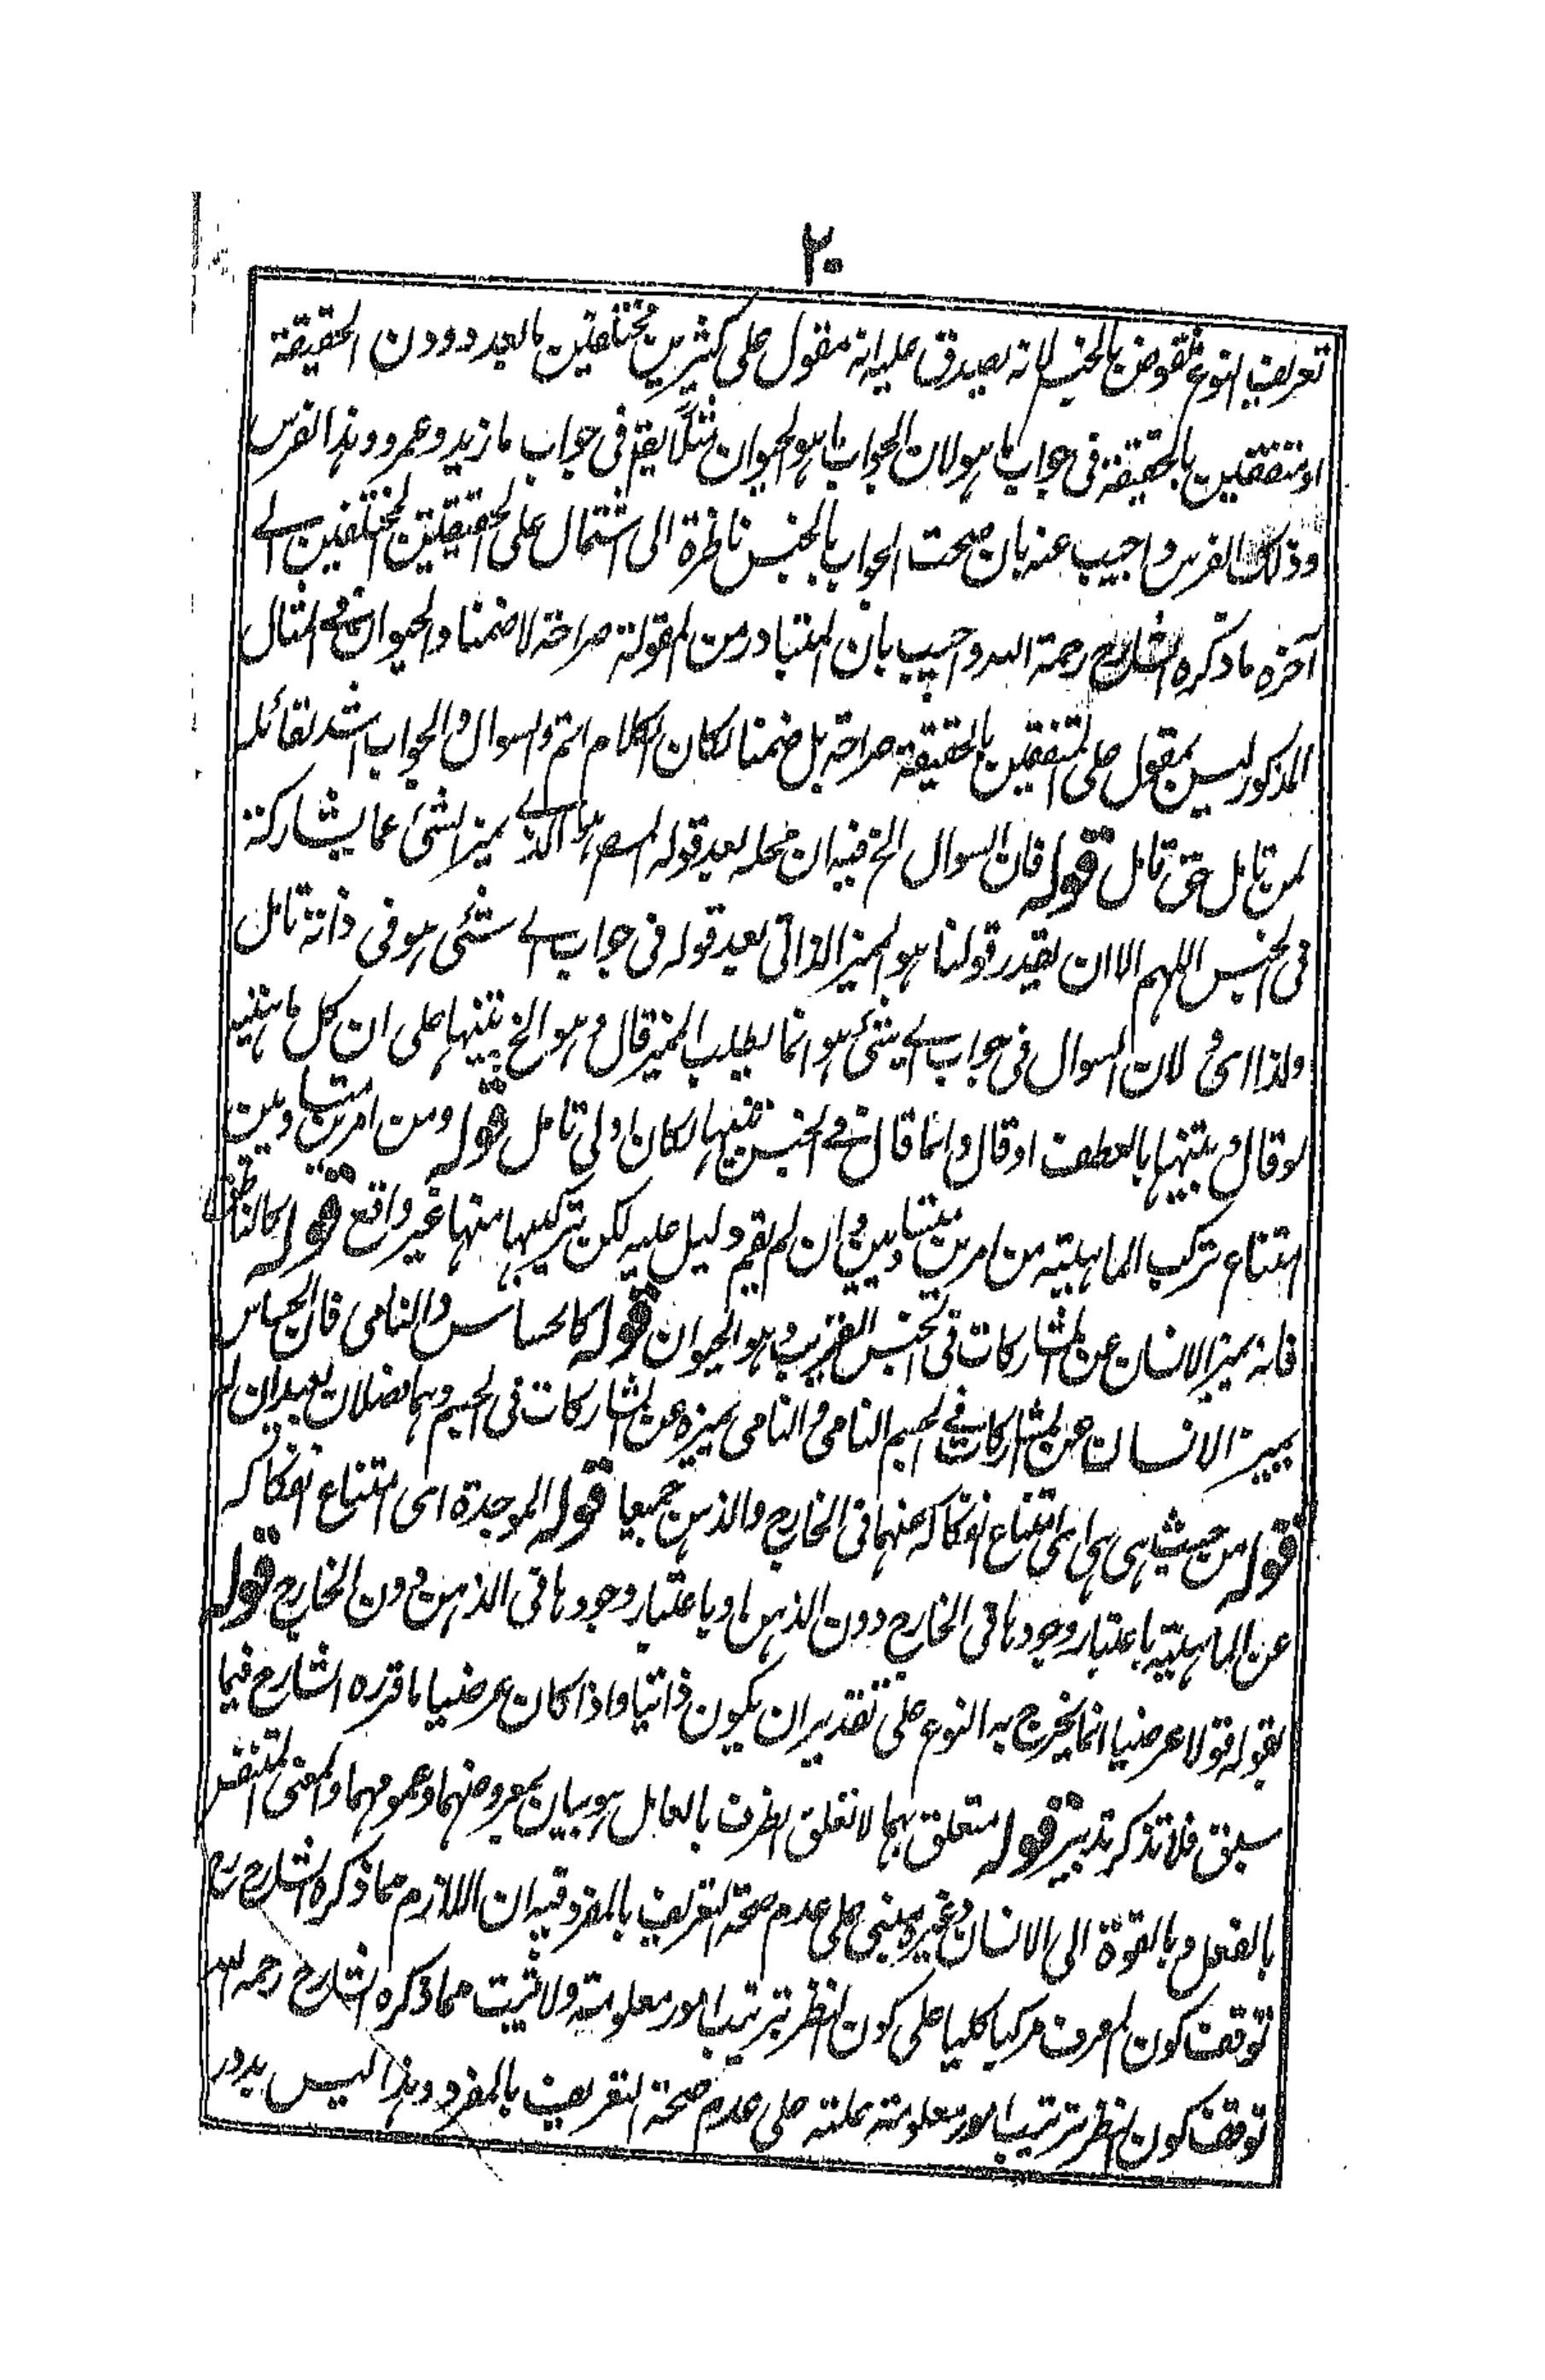 ٢٠
تعريف النوع منقوض بالجنس لانه يصدق عليه انه مقول على كثيرين مختلفين بالعدد دون الحقيقة
او متفقين بالحقيقة فى جواب ما هو لان الجواب ما هو الحيوان مثلا يقع فى جواب ما زيد وعمرو وهذا الفرس
وذلك الفرس واجيب عنه بان صحت الجواب بالجنس ناظرة الى اشتمال على الحقيقتين المختلفين الے
آخره ما ذكره الشارح رحمة الله واجيب بان المتبادر من المقولة صراحة لا ضمنا والحيوان فے المثال
المذكور ليس بمقول على المتفقين بالحقيقة صراحة بل ضمنا لكان الكلام اتم والسوال والجواب اشد تقائلا
لمن تامل حق تامل قوله فان السوال الخ فيه ان محله بعد قوله الذے يميز الشئ عما يشاركه
فى الجنس اللهم الا ان يقدر قولنا هو المميز الذاتى بعد قوله فى جواب اے شئى هو فى ذاته تامل
ولذا اى ولان السوال فى جواب اے شئ هو انما يطلب المميز قال وهو الخ تنبيها على ان كل ماهية
لو قال وتنبيها بالعطف او قال وانما قال فے الجنس تنبيها لكان اولى تامل قوله ومن امرين متساويين
امتناع تركب الماهية من امرين متساويين وان لم يقم دليل عليه لكن تركيبها منها غير واقع قوله كالناطق
فانه يميز الانسان عن المشاركات فى الجنس القريب وهو الحيوان قوله كالحساس والنامى فان الحساس
يميز الانسان عن المشاركات فے الجسم النامى والنامى يميزه عن المشاركات فى الجسم وهما فصلان بعيدان له
قوله من حيث هى هى اى امتناع انفكاكه عنهما فى الخارج والذهن جميعا قوله الموجدة اى امتناع انفكاكه
عن الماهية باعتبار وجودها فى الخارج دون الذهن او باعتبار وجودها فى الذهن دون الخارج قوله
بقوله قولا عرضيا انما يخرج به النوع على تقدير ان يكون ذاتيا واذا كان عرضيا ما قرره الشارح فيما
سبق فلا تذكر تدبر قوله متعلق بهما لا تعلق الظرف بالعامل هو بيان بمعروضهما وعمومهما والمعنى المتنفس
بالفعل وبالقوة الى الانسان وغيره مبنى على عدم صحة التعريف بالمفرد فيه ان اللازم مما ذكره الشارح رح
توقف كون المعرف مركبا كليا على كون النظر ترتيب امور معلومة ولا ثبت مما ذكره الشارح رحمه الله
توقف كون النظر ترتيب امور معلومة علته على عدم صحة التعريف بالمفرد وهذا ليس بدور